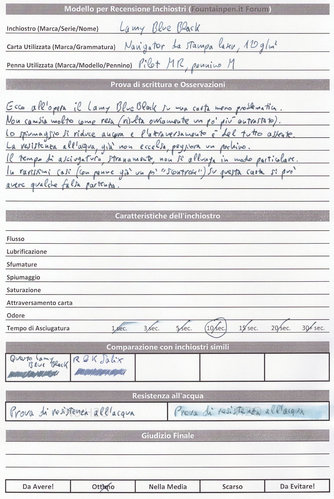 Modello per Recensione Inchiostri (Fountainpen.it Forum)
Inchiostro (Marca/Serie/Nome) Lamy Blue Black
Carta Utilizzata (Marca/Grammatura) Navigator La stampa laser, 110g/m²
Penna Utilizzata (Marca/Modello/Pennino) Pilot MR, pennino M
Prova di scrittura e Osservazioni
Ecco all'opera il Lamy Blue Black su una carta meno problematica.
Non cambia molto come resa (risulta ovviamente un po' più contrastato).
Lo spiumaggio si riduce ancora e l'attraversamento è del tutto assente.
La resistenza all'acqua, già non eccelsa, peggiora un pochino.
Il tempo di asciugatura, stranamente, non si allunga in modo particolare.
In rarissimi casi (con penne già un po' "sioutrose") su questa carta si può
avere qualche falsa partenza.
Caratteristiche dell'inchiostro
Flusso
Lubrificazione
Sfumature
Spiumaggio
Saturazione
Attraversamento carta
Odore
Tempo di Asciugatura 1 sec. 3 sec. 5 sec. 10 sec. 15 sec. 20 sec. 30+ sec.
Comparazione con inchiostri simili
Questo Lamy R&K Salix
Blue Black
Resistenza all'acqua
Prova di resistenza all'acqua Prova di resistenza all'acqua
Giudizio Finale
Da Avere! Ottimo Nella Media Scarso Da Evitare!